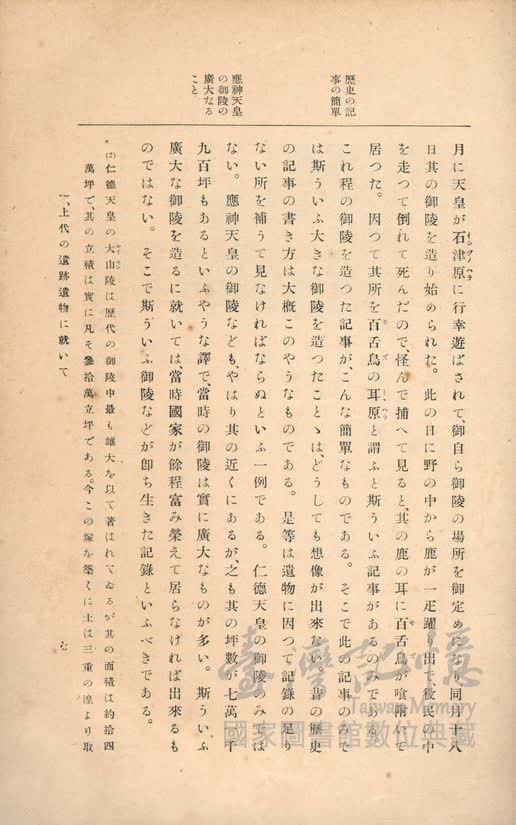 歷史の記
事の簡單
應神天皇
の御陵の
廣大なる
こと
月に天皇が石津原に行幸遊ばされて、御自ら御陵の場所を御定めになり同月十八
日其の御陵を造り始められた。此の日に野の中から鹿が一疋躍り出で役民の中
を走つて倒れて死んだので、怪んで捕へて見ると、其の鹿の耳に百舌鳥が喰附いて
居つた。因つて其所を百舌鳥の耳原と謂ふと斯ういふ記事があるのみである。
これ程の御陵を造つた記事が、こんな簡單なものである。そこで此の記事のみで
は斯ういふ大きな御陵を造つたことゝは、どうしても想像が出來ない。昔の歷史
の記事の書き方は大槪このやうなものである。是等は遺物に因つて記錄の足り
ない所を補うて見なければならぬといふ一例である。仁德天皇の御陵のみでは
ない。應神天皇の御陵なども、やはり其の近くにあるが、之も其の坪數が七萬一千
九百坪もあるといふやうな譯で、當時の御陵は實に廣大なものが多い。斯ういふ
廣大な御陵を造るに就いては、當時國家が餘程富み榮えて居らなければ出來るも
のではない。そこで斯ういふ御陵などが卽ち生きた記錄といふべきである。
(2)仁德天皇の大山陵は歷代の御陵中最も雄大を以て著はれてゐるが其の面積は約拾四
萬坪で、其の立積は實に凡そ參拾萬立坪である。今この塚を築くに土は三重の湟より取
一、上代の遺跡遺物に就いて
七
臺灣記憶
Taiwan Memory
國家圖書館數位典藏